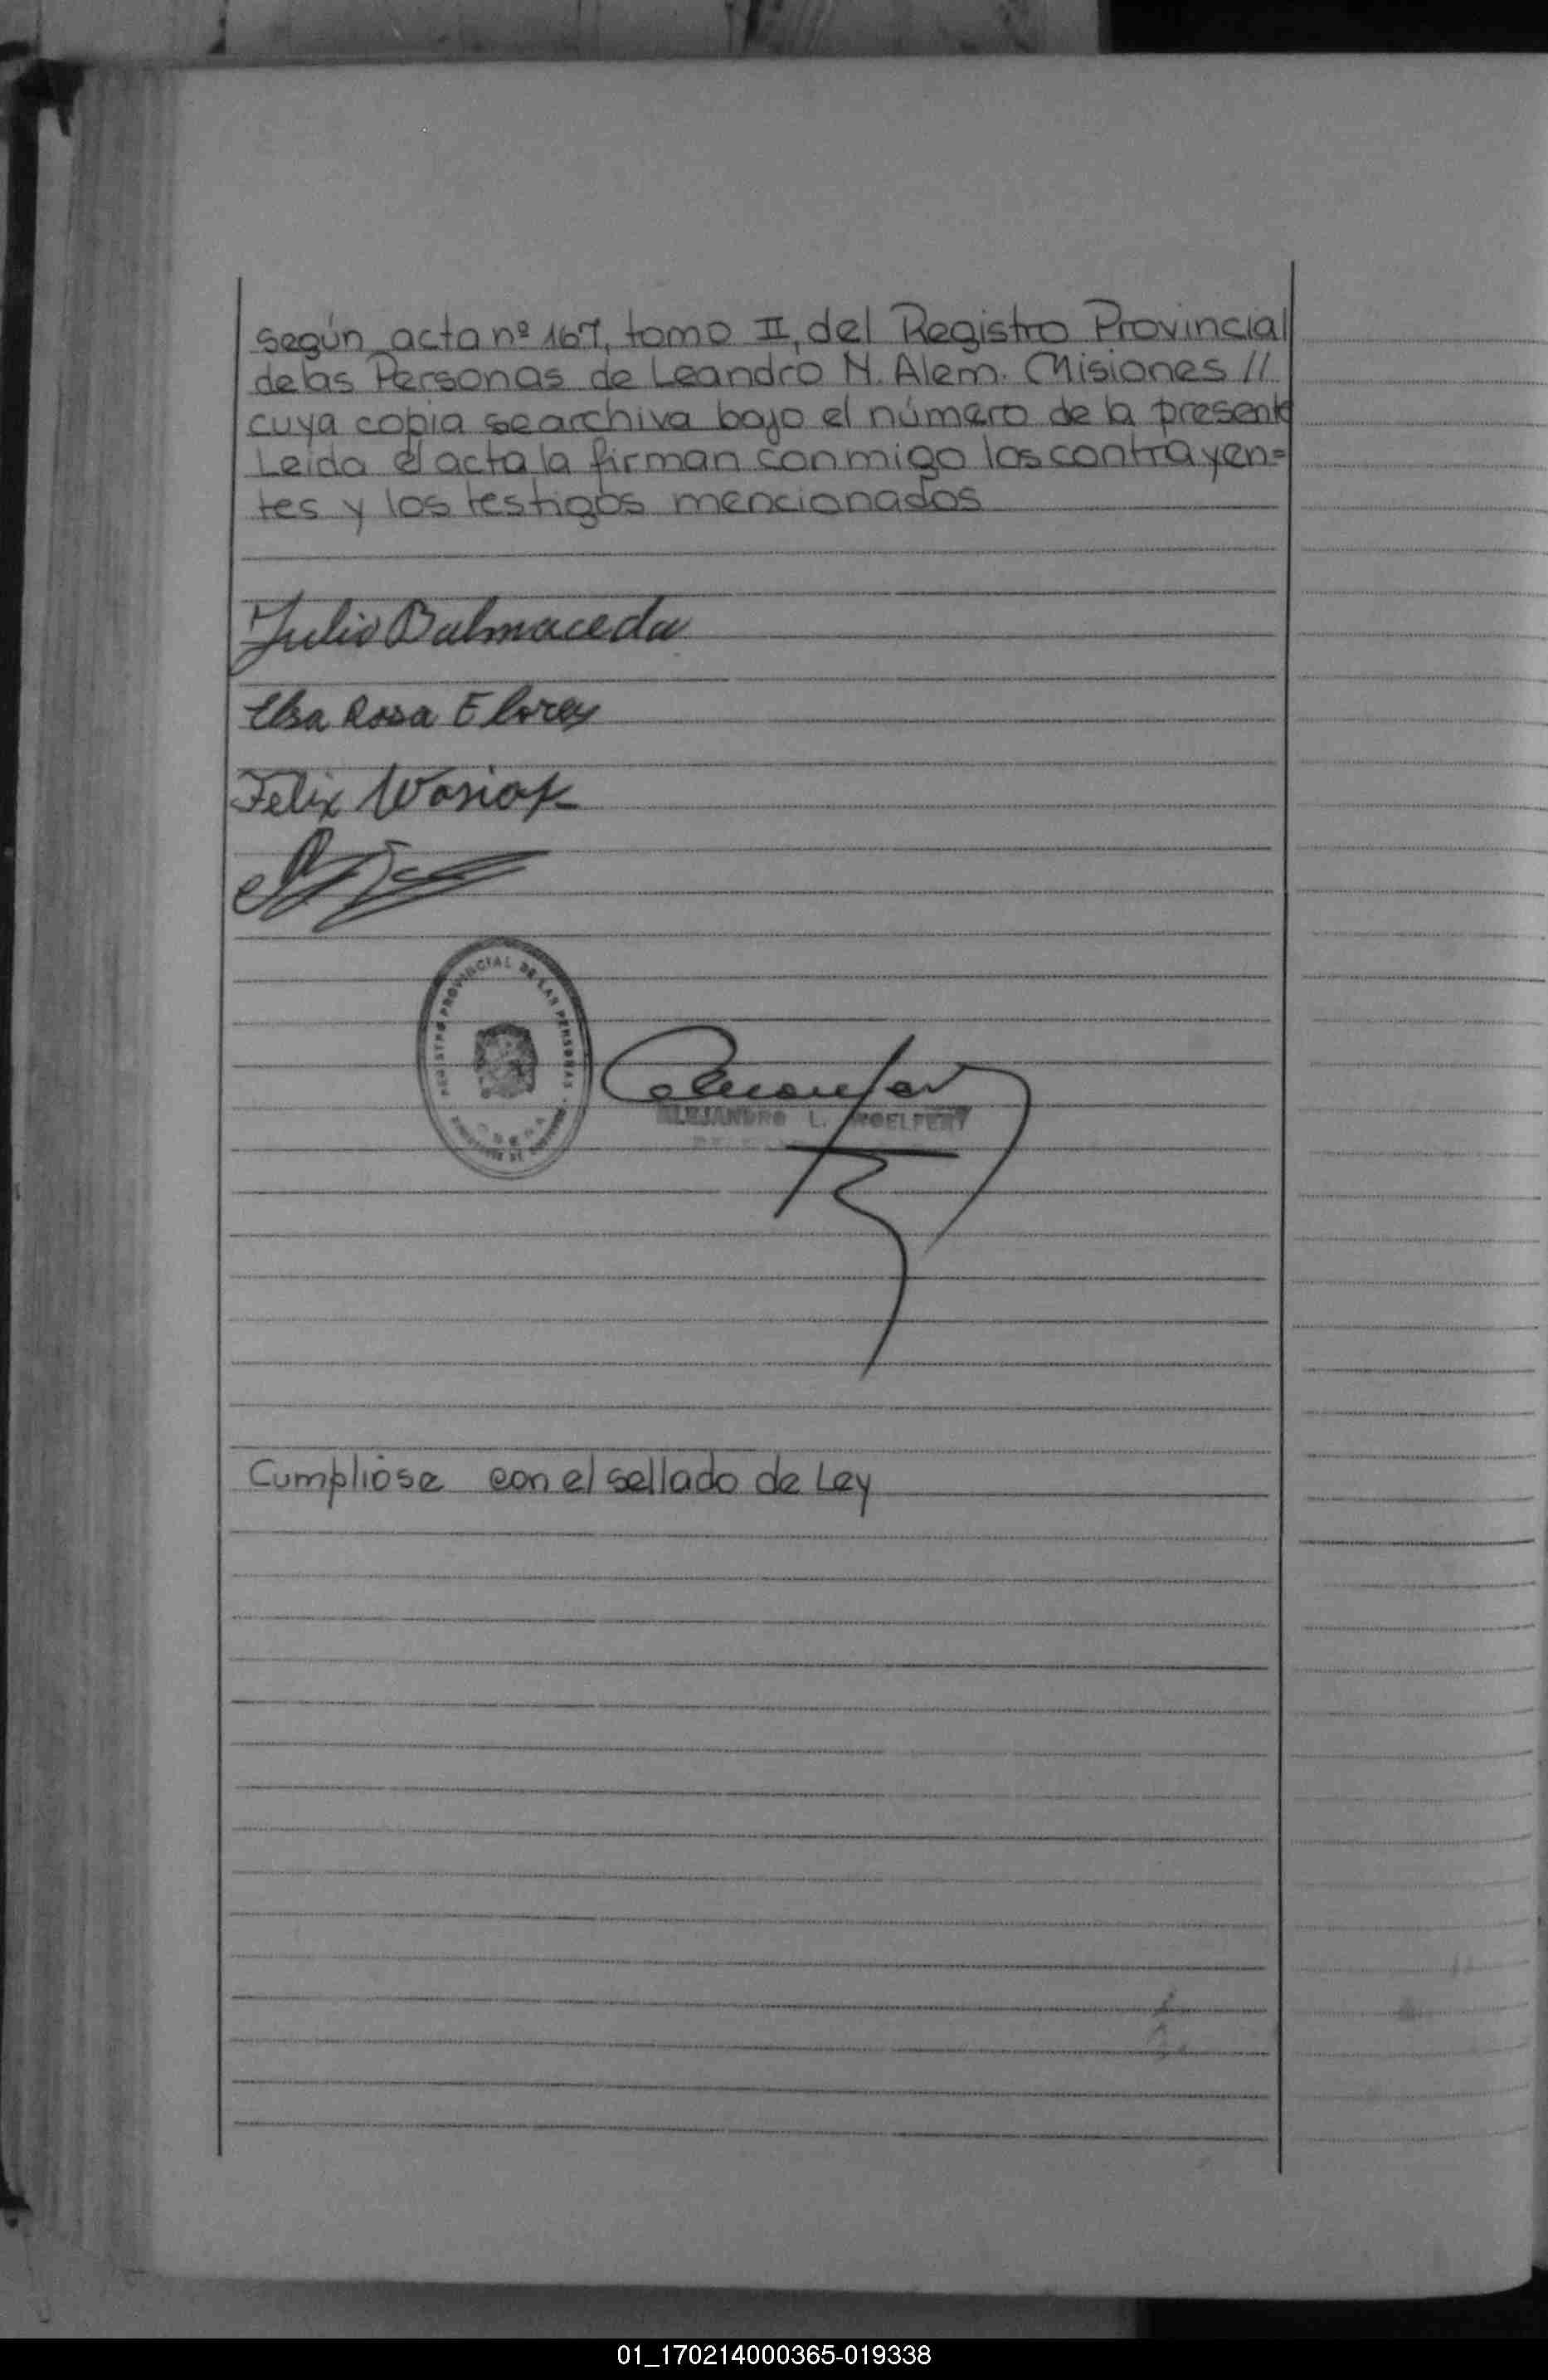 según acta nº 167, tomo II, del Registro Provincial
de las Personas de Leandro N. Alem. Misiones //
cuya copia se archiva bajo el número de la presente
Leída el acta la firman conmigo los contrayen=
tes y los testigos mencionados
Julio Balmaceda
Elsa Rosa Flores
Felix Wasiak
REGISTRO PROVINCIAL DE LAS PERSONAS
ALEJANDRO L. WOELFERT
Cumpliose con el sellado de Ley
01_170214000365-019338